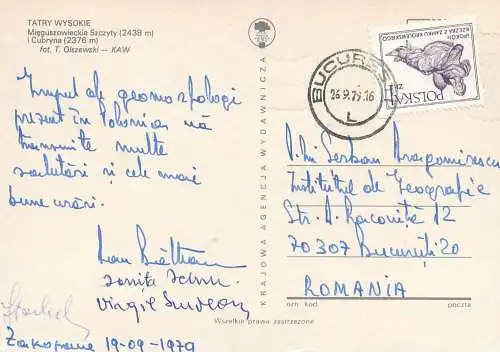 TATRY WYSOKIE
Mięguszowieckie Szczyty (2438 m)
i Cubryna (2376 m)
fot. T. Olszewski — KAW
Grupul de geomorfologi
prezent în Polonia vă
transmite multe
salutări și cele mai
bune urări.
Virgil
Zakopane 19-09-1979
KRAJOWA AGENCJA WYDAWNICZA
BUCUREȘTI
26.9.79.16
L
POLSKA
ZŁ
D-lui Șerban Dragomirescu
Institutul de Geografie
Str. D. Racoviță 12
70307 București 20
ROMANIA
nrn kod
poczta
Wszelkie prawa zastrzeżone